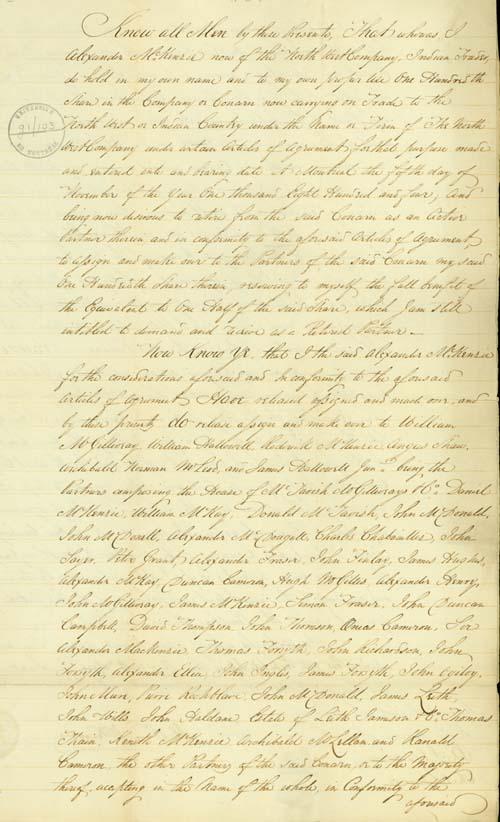 Know all Men by these Presents, That whereas I
Alexander McKenzie now of the North West Company, Indian Trader,
do hold in my own name and to my own proper Use One Hundredth
Share in the Company or Concern now carrying on Trade to the
North West or Indian Country under the Name or Firm of The North
West Company under certain Articles of Agreement for that purpose made
and entered into and bearing date At Montreal the fifth day of
November of the Year One thousand Eight Hundred and four; And
being now desirous to retire from the said Concern as an Active
Partner therein and in conformity to the aforesaid Articles of Agreement,
to assign and make over to the Partners of the said Concern my said
One Hundredth Share therein, reserving to myself the full benefit of
the Equivalent to One Half of the said Share, which I am still
intitled to demand and receive as a Retired Partner. —
Now Know Ye, that I the said Alexander McKenzie
for the considerations aforesaid and In conformity to the aforesaid
Articles of Agreement Have released assigned and made over, and
by these presents do release assign and make over to William
McGillivray, William Hallowell, Roderick McKenzie, Angus Shaw,
Archibald Norman McLeod, and James Hallowell Junr. being the
Partners composing the House of McTavish McGillivrays & Co. Daniel
McKenzie, William McKay, Donald McTavish, John McDonald,
John McDonell, Alexander McDougall, Charles Chaboullez, John
Sayer, Peter Grant, Alexander Fraser, John Finlay, James Hughes,
Alexander McKay, Duncan Cameron, Hugh McGilles, Alexander Henry,
John McGillivray, James McKenzie, Simon Fraser, John Duncan
Campbell, David Thompson, John Thomson, Aneas Cameron, Sir
Alexander MacKenzie, Thomas Forsyth, John Richardson, John
Forsyth, Alexander Ellice, John Inglis, James Forsyth, John Ogilvy,
John Mure, Pierre Rocheblave, John McDonald, James Leith,
John Wills, John Haldane, Estate of Leith Jamson & Co. Thomas
Thain, Keneth McKenzie, Archibald McLellan, and Ranald
Cameron, the other Partners of the said Concern, or to the Majority
thereof, accepting in the Name of the whole, in Conformity to the
aforesaid